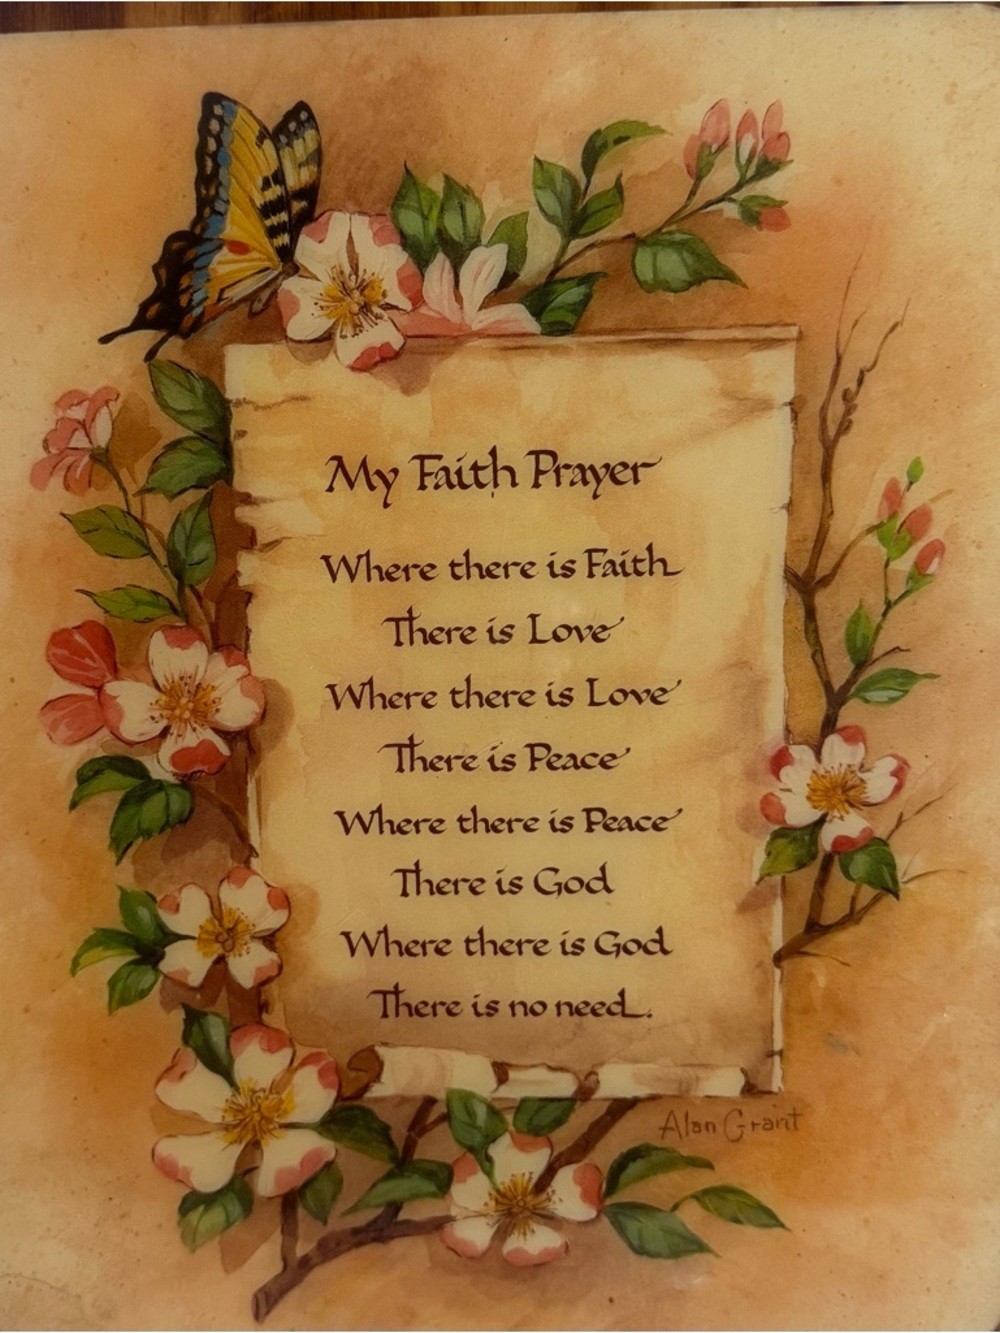 My Faith Prayer
Where there is Faith
There is Love
Where there is Love
There is Peace
Where there is Peace
There is God
Where there is God
There is no need.
Alan Grant